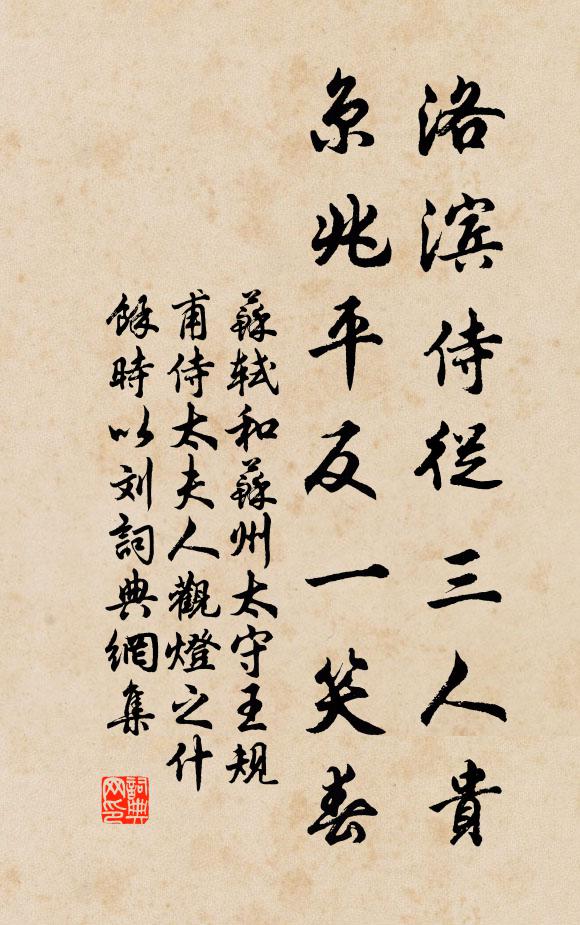 洛滨侍從三人貴
京兆平反一笑春
蘇軾和蘇州太守王規
甫侍太夫人觀燈之什
餘時以刘詞典網集
詞典
网印